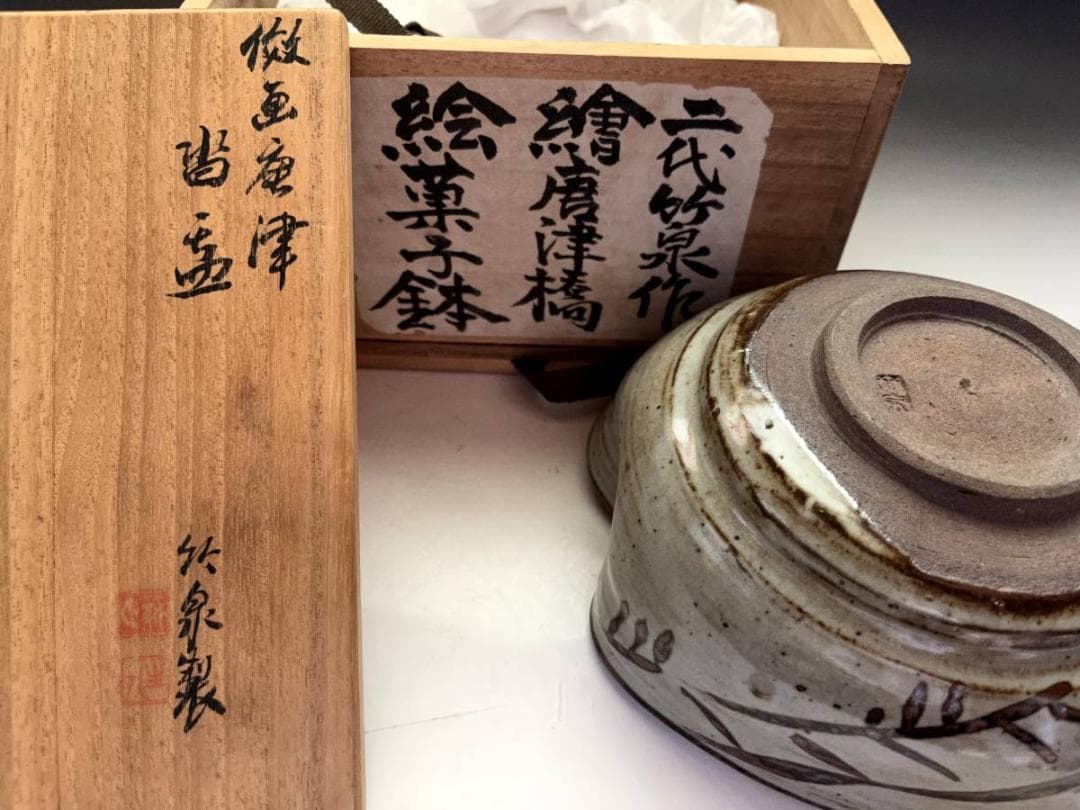 倣画唐津
沓盂
竹泉製
二代竹泉作
繪唐津橋
絵菓子鉢